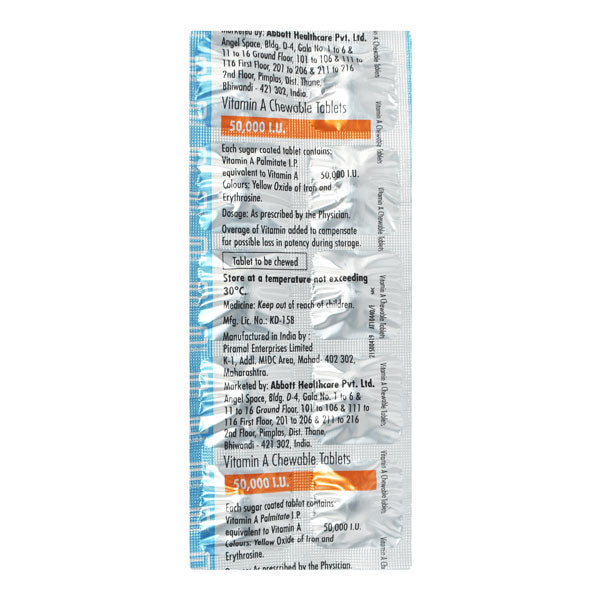 Marketed by: Abbott Healthcare Pvt. Ltd.
Angel Space, Bldg. D-4, Gala No. 1 to 6 &
11 to 16 Ground Floor, 101 to 106 & 111 to
116 First Floor, 201 to 206 & 211 to 216
2nd Floor, Pimplas, Dist. Thane,
Bhiwandi - 421 302, India.
Vitamin A Chewable Tablets
50,000 I.U.
Each sugar coated tablet contains:
Vitamin A Palmitate I.P.
equivalent to Vitamin A 50,000 I.U.
Colours: Yellow Oxide of Iron and
Erythrosine.
Dosage: As prescribed by the Physician.
Overage of Vitamin added to compensate
for possible loss in potency during storage.
Tablet to be chewed
Store at a temperature not exceeding
30°C.
Medicine: Keep out of reach of children.
Mfg. Lic. No.: KD-158
Manufactured in India by :
Piramal Enterprises Limited
K-1, Addl. MIDC Area, Mahad- 402 302,
Maharashtra.
Marketed by: Abbott Healthcare Pvt. Ltd.
Angel Space, Bldg. D-4, Gala No. 1 to 6 &
11 to 16 Ground Floor, 101 to 106 & 111 to
116 First Floor, 201 to 206 & 211 to 216
2nd Floor, Pimplas, Dist. Thane,
Bhiwandi - 421 302, India.
Vitamin A Chewable Tablets
50,000 I.U.
Each sugar coated tablet contains:
Vitamin A Palmitate I.P.
equivalent to Vitamin A 50,000 I.U.
Colours: Yellow Oxide of Iron and
Erythrosine.
As prescribed by the Physician.
Tablets
Vitamin A Chewable Tablets
Vitamin A Chewable Tablets
Vitamin A Chewable Tablets
Vitamin A Chewable Tablets
Vitamin A Chewable Tablets